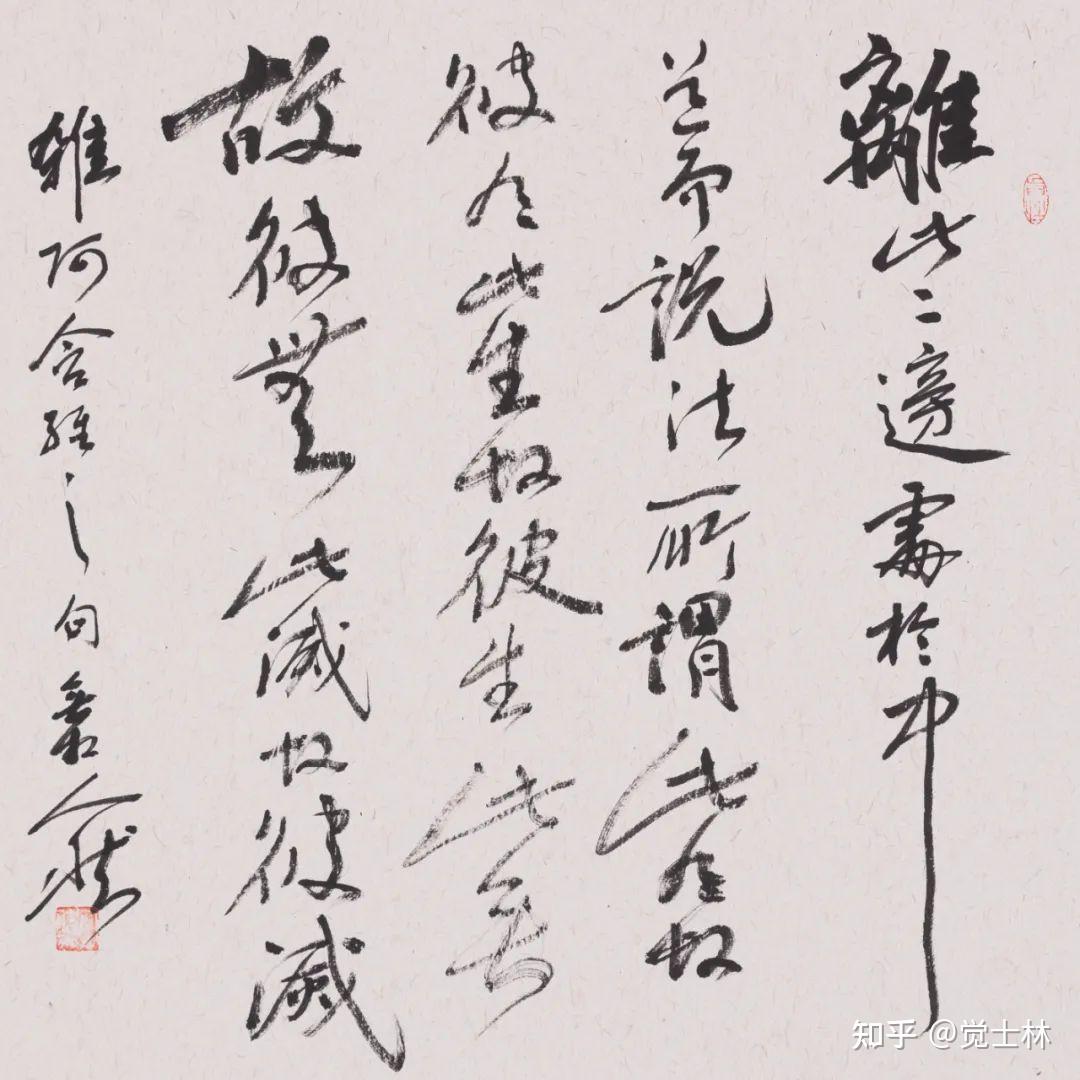 離此二邊處於中
道而說法所謂此有故
彼有此生故彼生此無
故彼無此滅故彼滅
雜阿含經之句
知乎 @觉士林